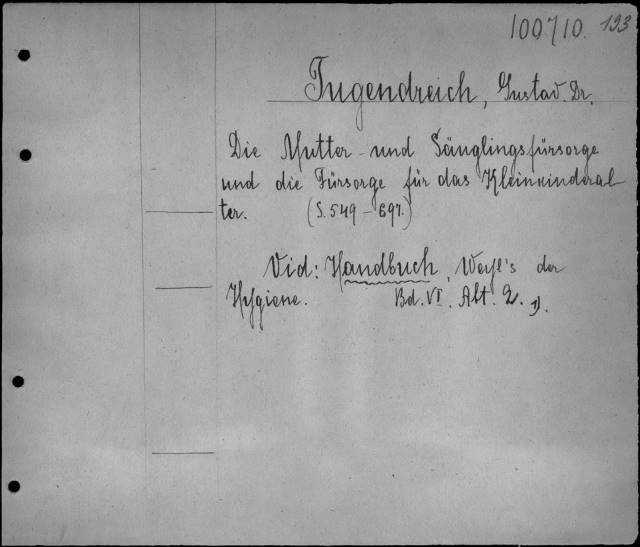 100710. 193
Tugendreich, Gustav. Dr.
Die Mutter- und Säuglingsfürsorge
und die Fürsorge für das Kleinkinderal-
ter. (S. 549-697.)
Vid: Handbuch, Weyl's der
Hygiene. Bd. VI. Abt. 2.